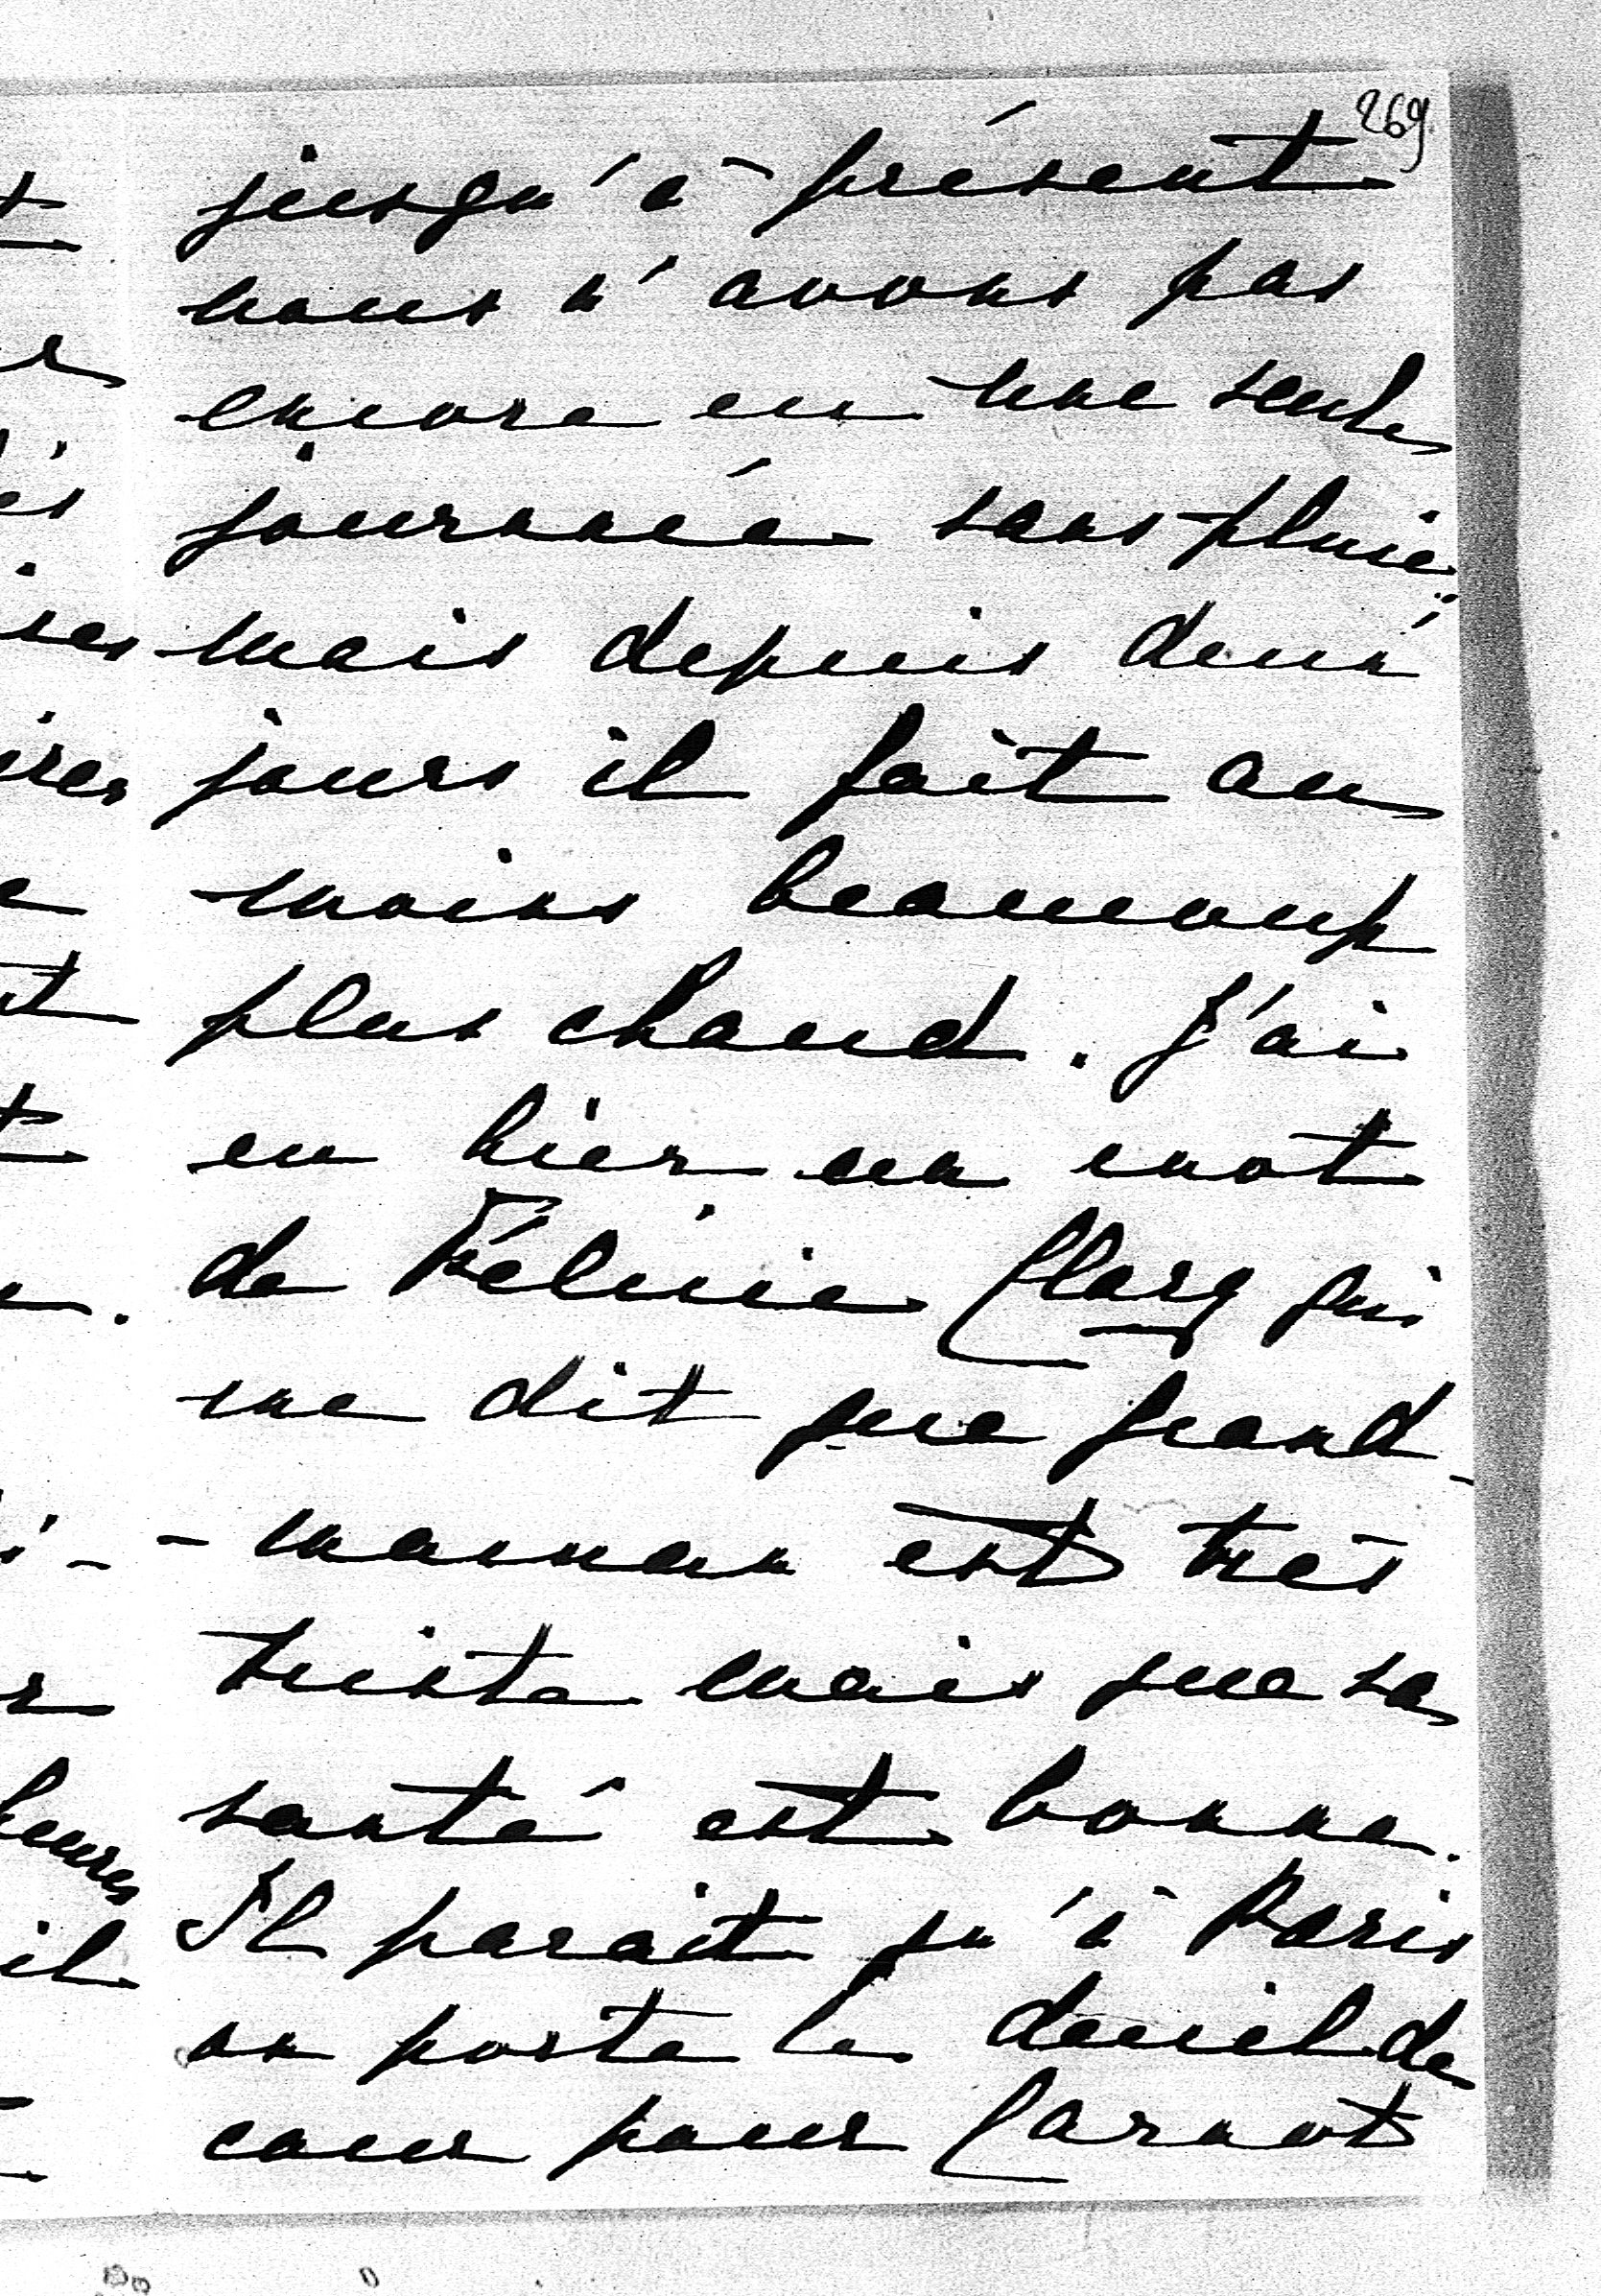 269
jusqu'à présent
nous n'avons pas
encore eu une seule
journée sans pluie
mais depuis deux
jours il fait au
moins beaucoup
plus chaud. J'ai
eu hier un mot
de Félicie qui
me dit que grand-
-maman est très
triste mais que sa
santé est bonne.
Il parait qu'à Paris
on porte le deuil de
cour pour Carnot